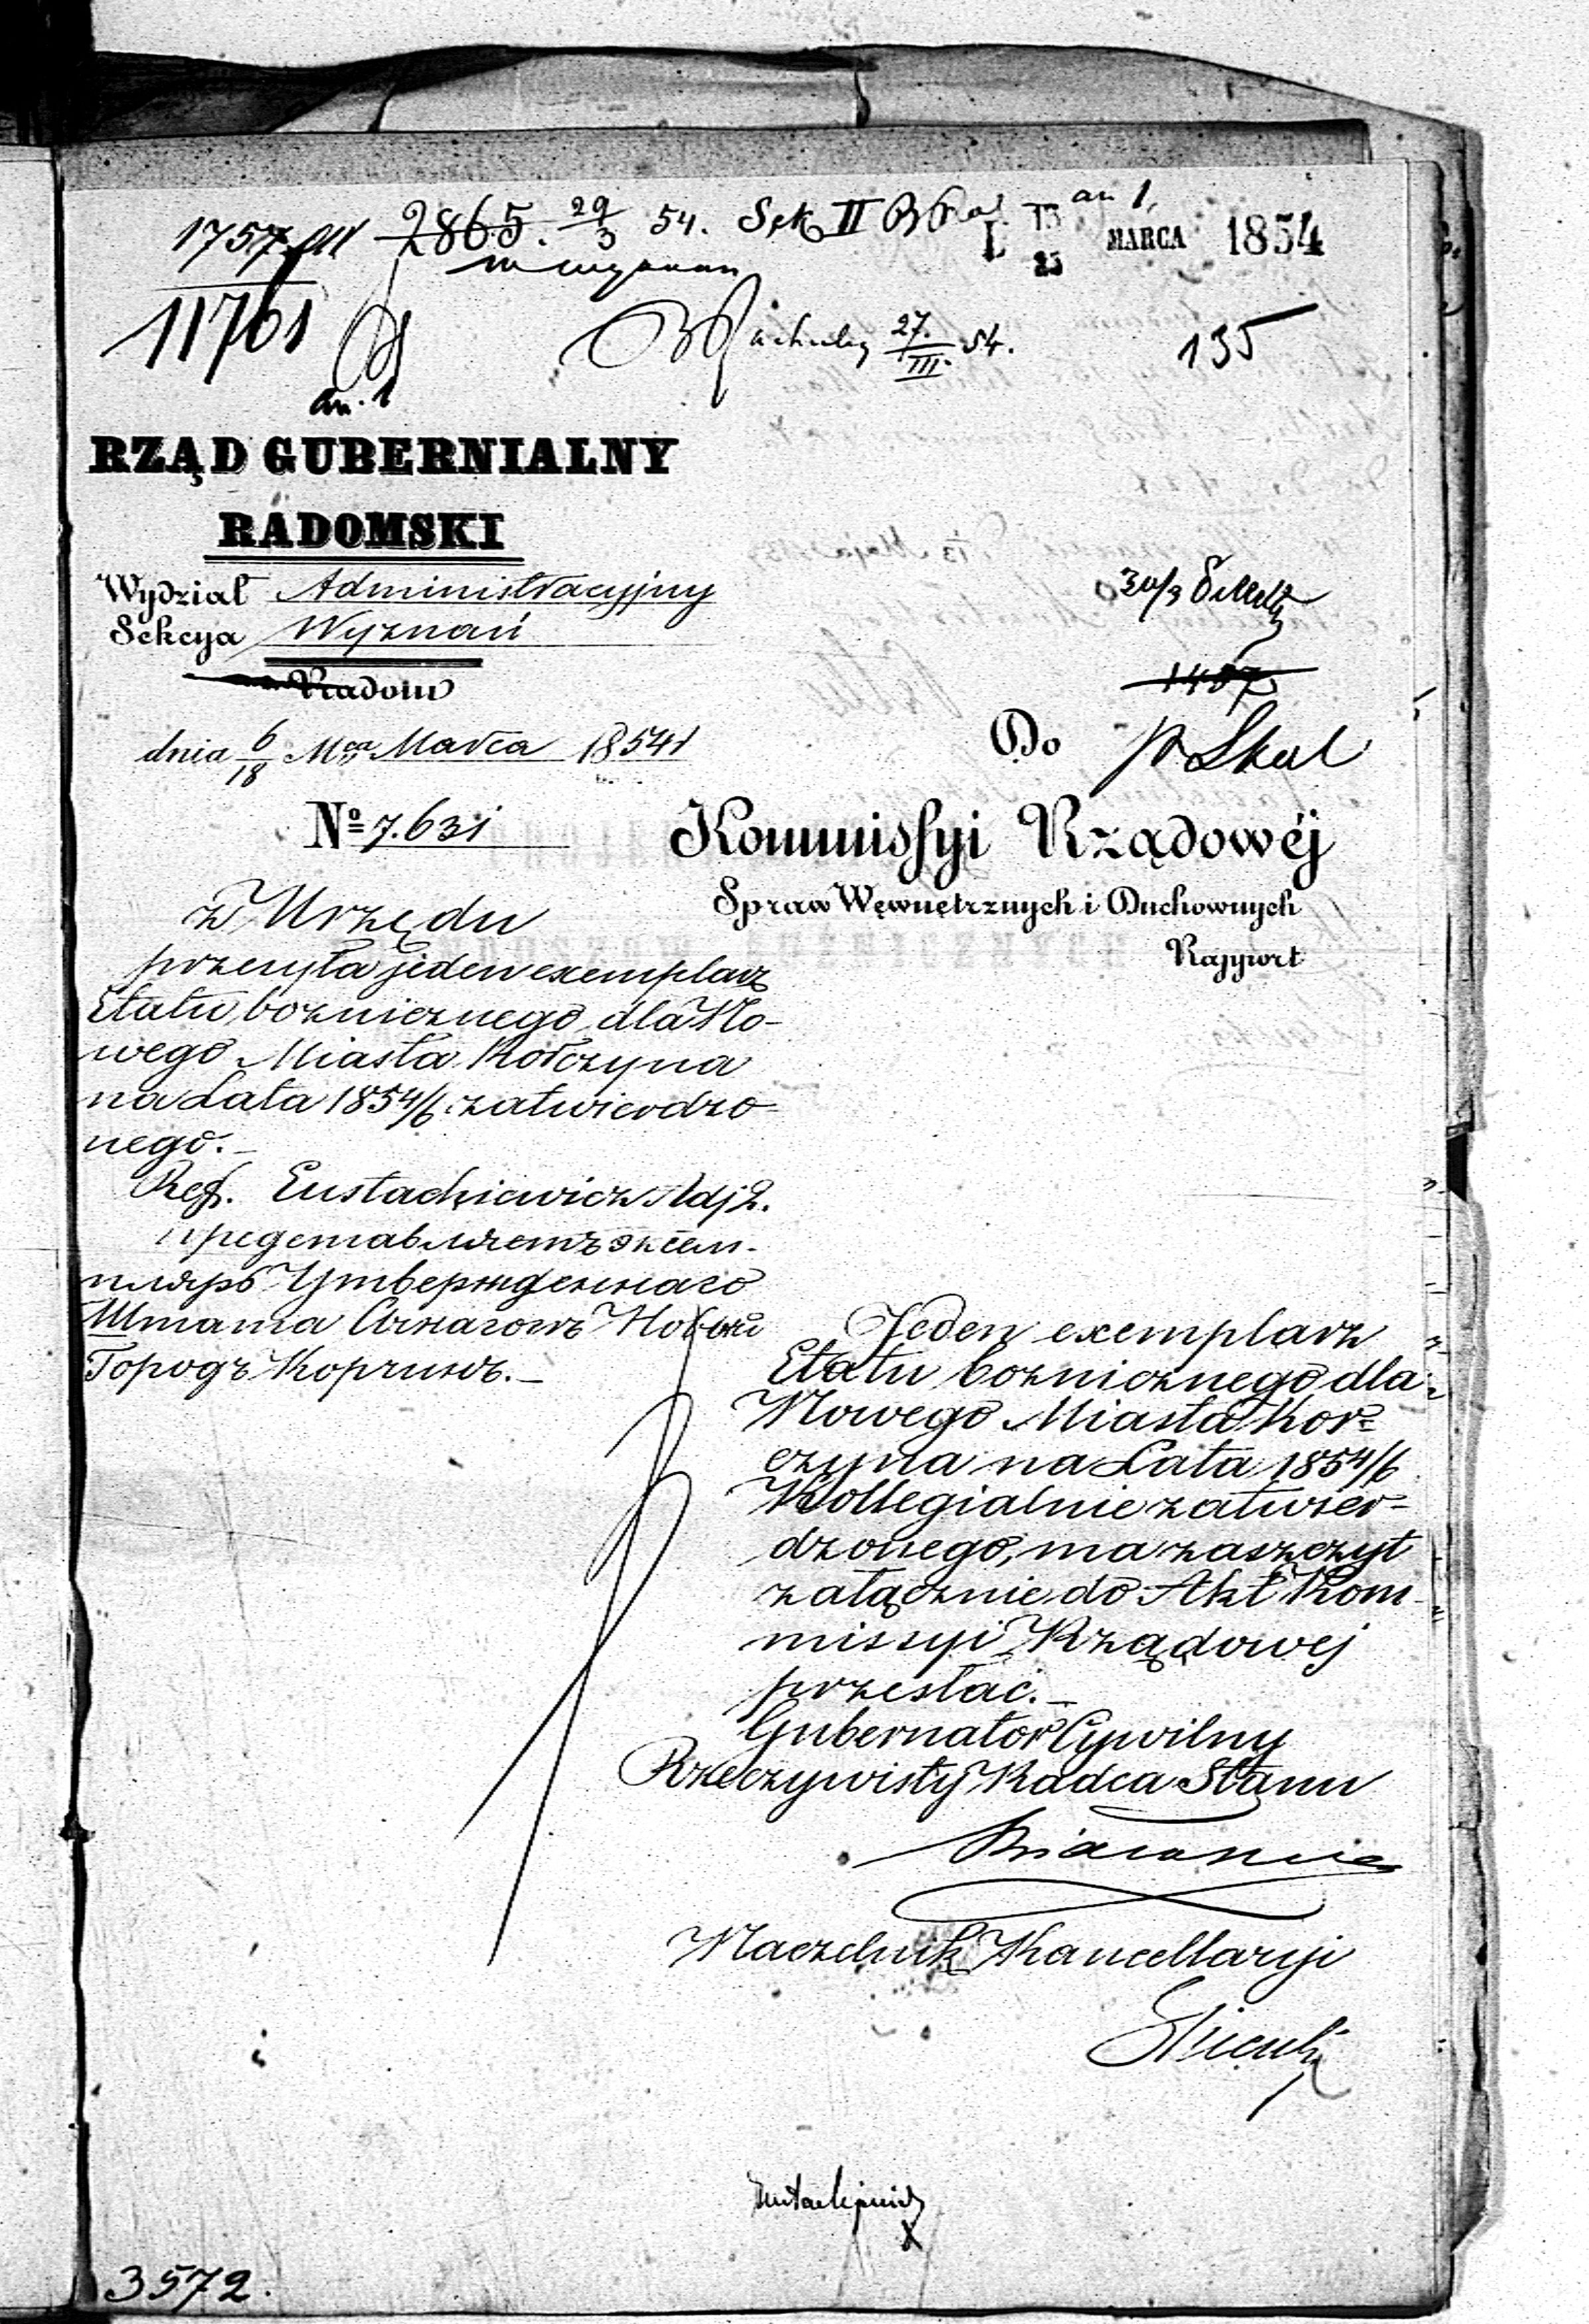 1757
2865. 29/3 54. Sek II
13/25 MARCA 1854
11761
27/III 54.
135
an. 1
RZĄD GUBERNIALNY
RADOMSKI
Wydział Administracyjny
Sekcya Wyznań
Radom
30/3
1407
dnia 6/18 Mca Marca 1854
Do
No 7.631
Kommissyi Rządowéj
Spraw Wewnętrznych i Duchownych
Rapport
z Urzędu
przesyła jeden exemplarz
Etatu boznicznego dla No-
wego Miasta Korczyna
na Lata 1854/6 zatwierdzo-
nego.-
Ref. Eustachiewicz Adj 2.
представляетъ экзем-
пляръ Утвержденнаго
Штата Синагоги Новый
Городъ Корчинъ.-
Jeden exemplarz
Etatu boznicznego dla
Nowego Miasta Kor-
czyna na Lata 1854/6
Kollegialnie zatwier-
dzonego, ma zaszczyt
załącznie do Akt Kom-
missyi Rządowej
przesłać.-
Gubernator Cywilny
Rzeczywisty Radca Stanu
Białoskurski
Naczelnik Kancellaryi
3572.